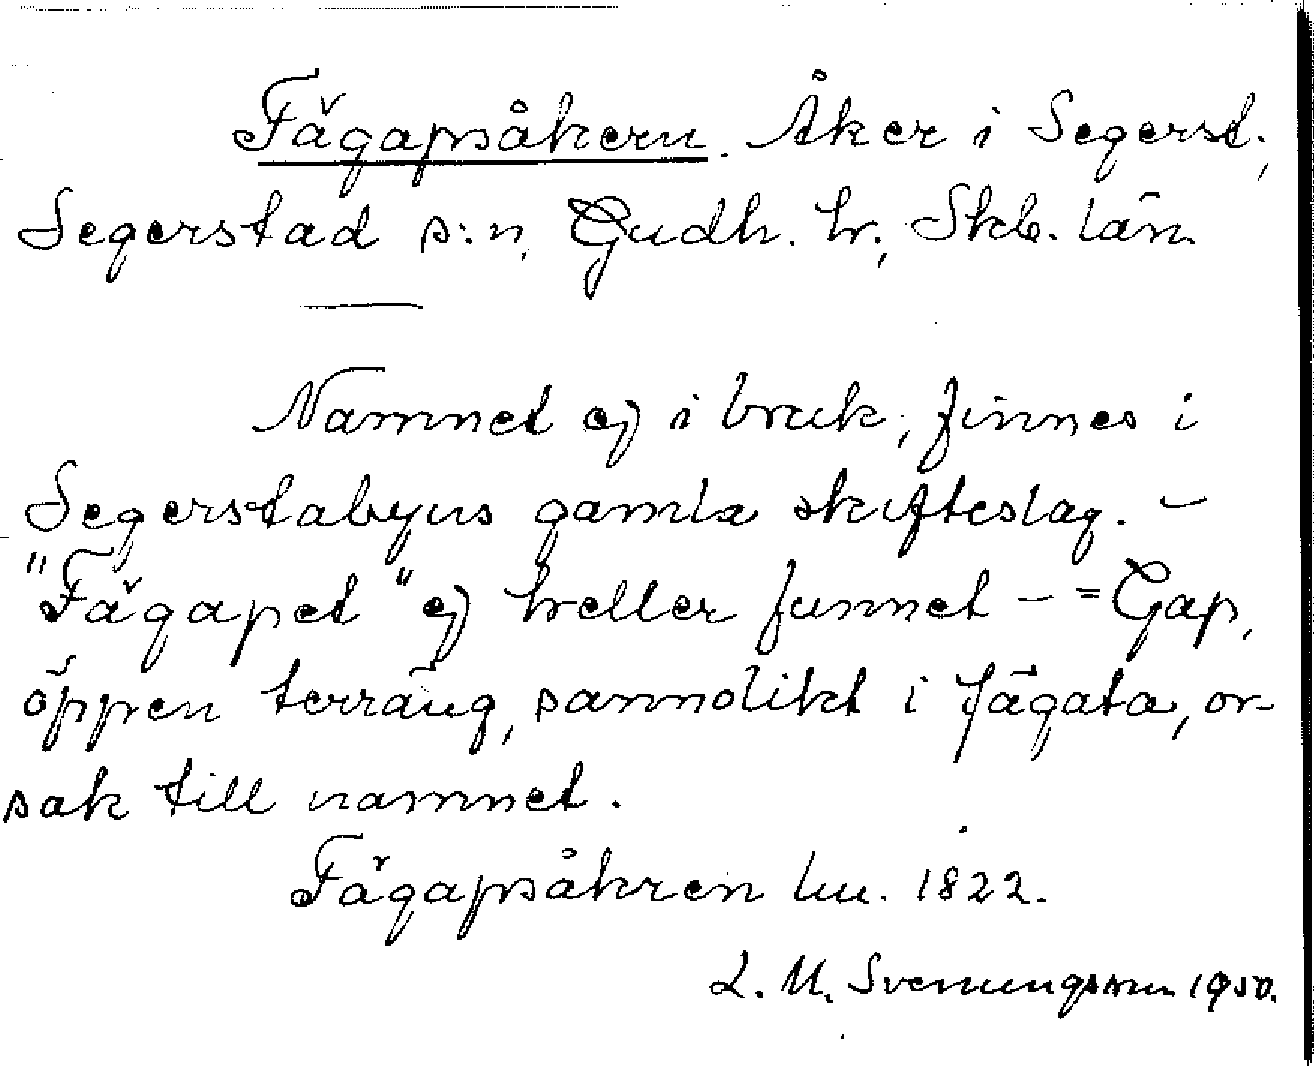 Fägapsåkern. Åker i Segerst.,
Segerstad s:n, Gudh. hr., Skb. län.
Namnet ej i bruk, finnes i
Segerstabyns gamla skifteslag. –
"Fägapet" ej heller funnet – = Gap,
öppen terräng, sannolikt i fägata, or-
sak till namnet.
Fägapsåkren lm. 1822.
L. M. Svenungsson 1950.